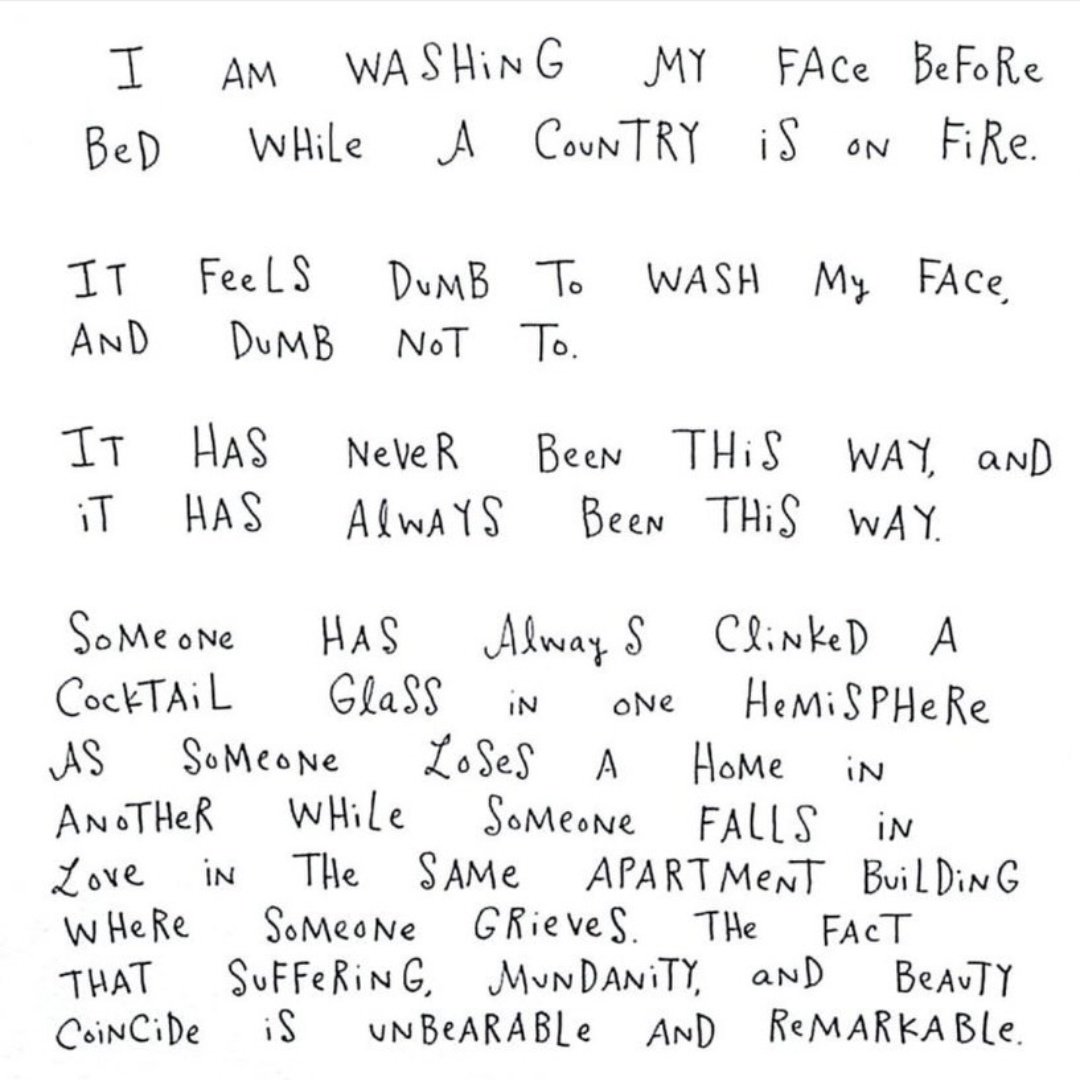 I AM WASHiNG MY FACe BeFoRe
BeD WHiLe A CouNTRY iS oN FiRe.
IT FeeLS DuMB To WASH My FACe,
AND DuMB NoT To.
IT HAS NeVeR BeeN THiS WAY, aND
iT HAS AlWAYS BeeN THiS WAY.
SoMeoNe HAS AlwayS ClinkeD A
CockTAiL GlaSS iN oNe HeMiSPHeRe
AS SoMeoNe LoSeS A HoMe iN
ANoTHeR WHiLe SoMeoNe FALLS iN
Love iN THe SAMe APARTMeNT BuiLDiNG
WHeRe SoMeoNe GRieveS. THe FAcT
THAT SuFFeRiNG, MuNDANiTY, aND BeAuTY
CoiNCiDe iS uNBeARABLe AND ReMARKABLe.